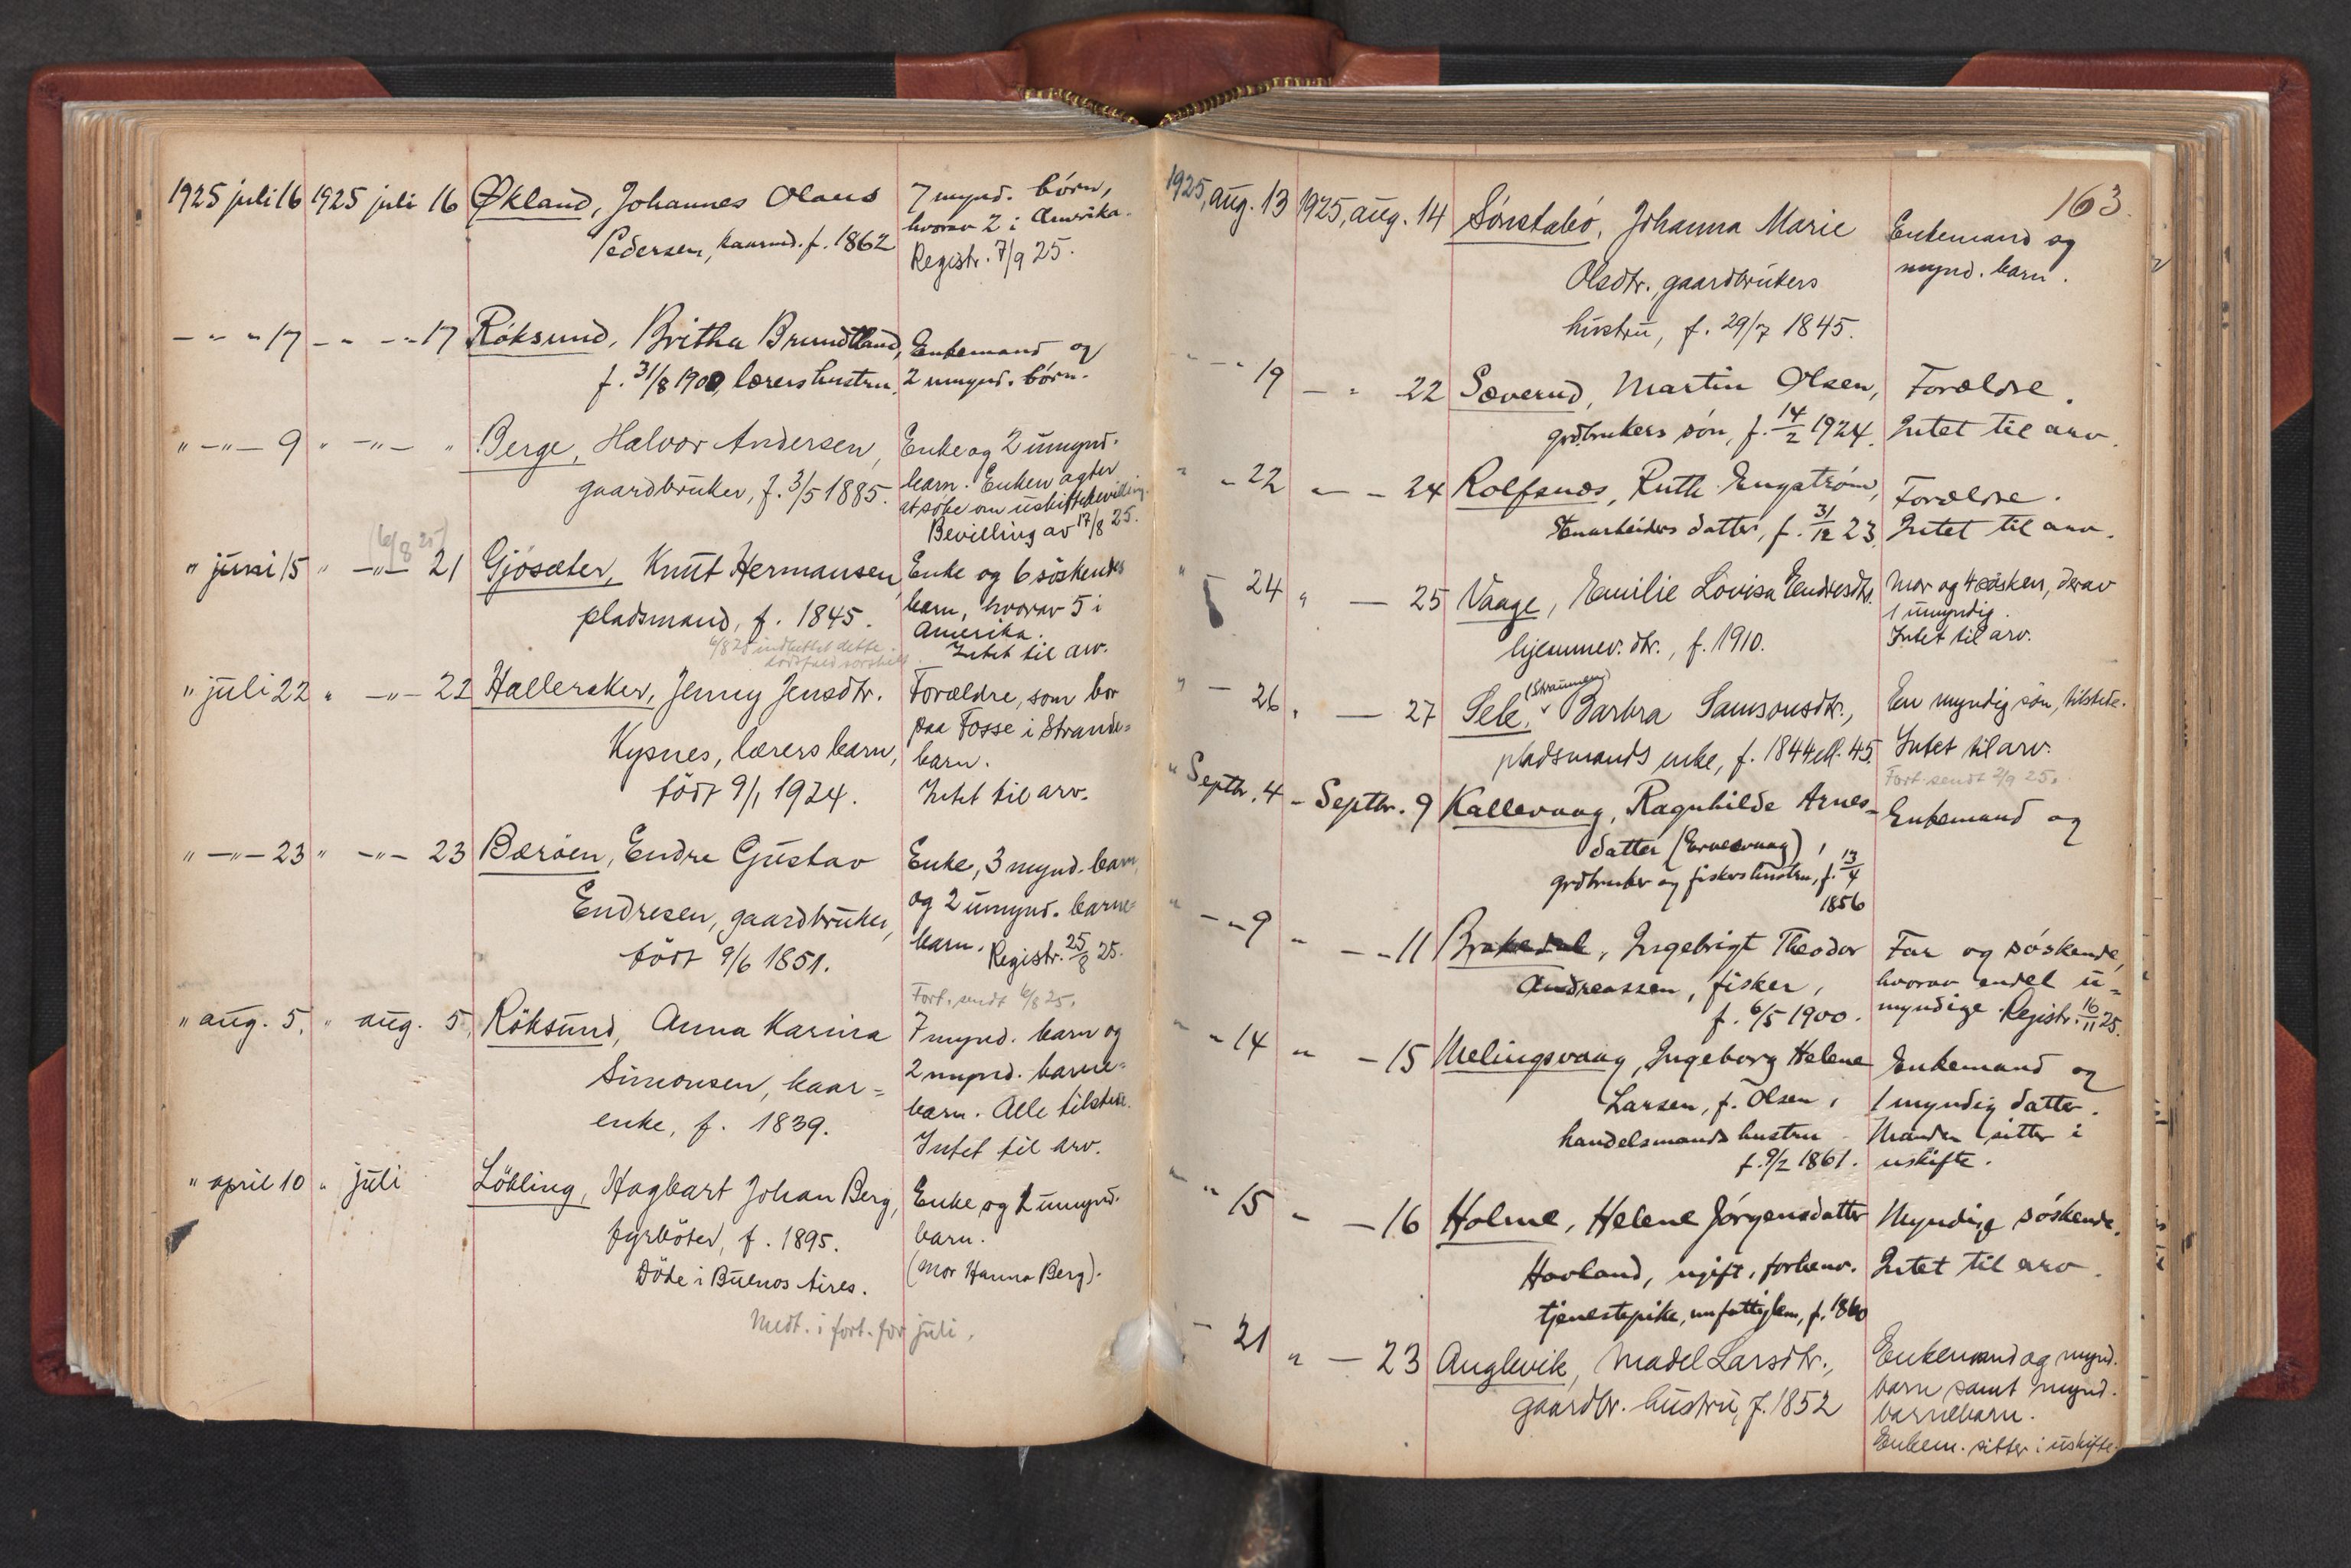 1925 juli 16 1925 juli 16 Økland, Johannes Olaus 7 mynd. börn,
hvorav 2 i Amerika.
Pedersen, kaarmd. f. 1862 Registr. 7/9 25.
— " — " 17 — " — " 17 Röksund, Britha Brundtland, Enkemand og
f. 31/8 1900, lærers hustru. 2 umynd. börn.
" — " — 9 " — " — " Berge, Halvor Andersen, Enke og 2 umynd.
gaardbruker, f. 3/5 1885. barn. Enken agter
at söke om uskiftebevilling.
Bevilling av 17/8 25.
(6/8 25)
" juni 15 " — " — 21 Gjösæter, Knut Hermansen, Enke og 6 söskende
pladsmand, f. 1845. barn, hvorav 5 i
Amerika.
6/8 25 indbettet dette Intet til arv.
dödsfald
" juli 22 " — " — 22 Hælleraker, Jenny Jensdtr. Forældre, som bor
Kysnes, lærers barn, paa Fosse i Strande=
barn.
födt 9/1 1924. Intet til arv.
" — " — 23 " — " — 23 Bæröen, Endre Gustav Enke, 3 mynd. barn
Endresen, gaardbruker, og 2 umynd. barne=
födt 9/6 1851. barn. Registr. 25/8 25.
Fort. sendt 6/8 25.
" aug. 5, " aug. 5, Röksund, Anna Karina 7 mynd. barn og
Simonsen, kaar= 2 mynd. barne=
enke, f. 1839. barn. Alle tilstede.
Intet til arv.
" april 10 " juli Lökling, Hagbart Johan Berg, Enke og 2 umynd.
fyrböter, f. 1895. barn.
Döde i Buenos Aires. (Mor Hanna Berg).
Medt. i fort. for juli.
163.
1925, aug. 13 1925, aug. 14 Sönstabö, Johanna Marie Enkemand og
Olsdtr., gaardbrukers mynd. barn.
hustru, f. 29/7 1845.
— " 19 — " 22 Sæverud, Martin Olsen, Forældre.
grdbrukers sön, f. 14/2 1924. Intet til arv.
" — " 22 " — — 24 Rolfsnes, Ruth Engström, Forældre.
Stenarbeiders datter, f. 31/12 23. Intet til arv.
" — 24 " — 25 Vaage, Emilie Lovisa Endresdtr. Mor og 4 søsken, derav
1 umyndig.
hjemmev. dtr., f. 1910. Intet til arv.
(Straumen)
" — 26 " — 27 Sele, Barbra Samsonsdtr., En myndig sön, tilstede.
pladsmands enke, f. 1844 ell. 45. Intet til arv.
Fort. sendt 2/9 25.
" Septbr. 4 — Septbr. 9 Kallevaag, Ragnhilde Arnes- Enkemand og
datter (Ervesvaag),
grdbruker og fiskers hustru, f. 13/4
1856
" — " 9 " — — 11 Brakedal, Ingebrigt Theodor Far og söskende,
Andreassen, fisker, hvorav endel u=
f. 6/5 1900. myndige. Registr. 16/11 25.
" — " 14 " — 15 Melingsvaag, Ingeborg Helene Enkemand og
Larsen, f. Olsen, 1 myndig datter.
handelsmands hustru Manden sitter i
f. 9/2 1861. uskifte.
" — " 15 " — 16 Holme, Helene Jörgensdatter Myndige söskende.
Hovland, ugift, forhenv. Intet til arv.
tjenestepike, nu fattiglem, f. 1860
— 21 " — 23 Anglevik, Madel Larsdtr., Enkemand og mynd.
gaardbr. hustru, f. 1852 barn samt mynd.
barnebarn.
Enkem. sitter i uskifte.